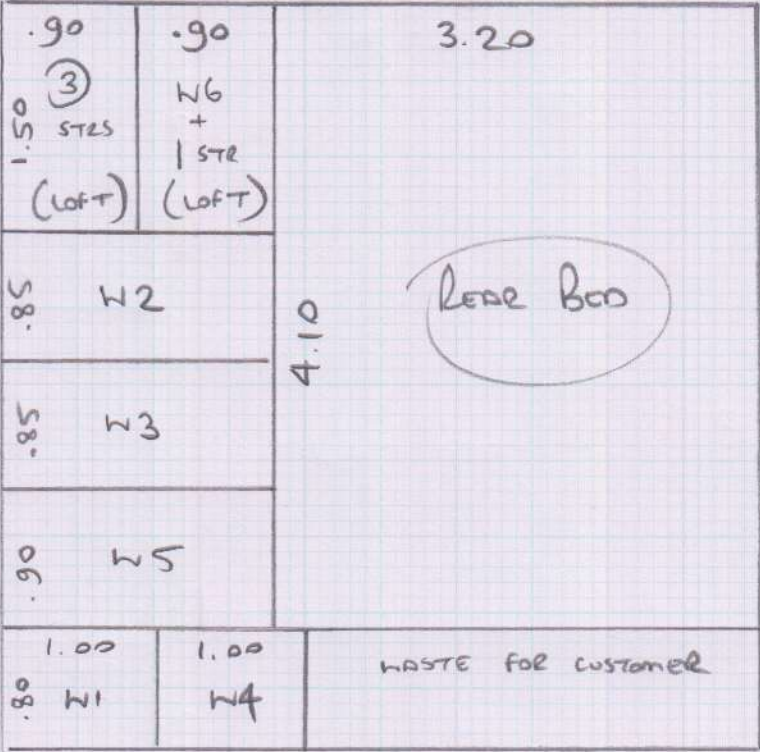 .90
③
STRS
1.50
(LOFT)
.90
W6
+
1 STR
(LOFT)
3.20
.85
W2
4.10
REAR BED
.85
W3
.90
W5
1.00
.80 W1
1.00
W4
WASTE FOR CUSTOMER